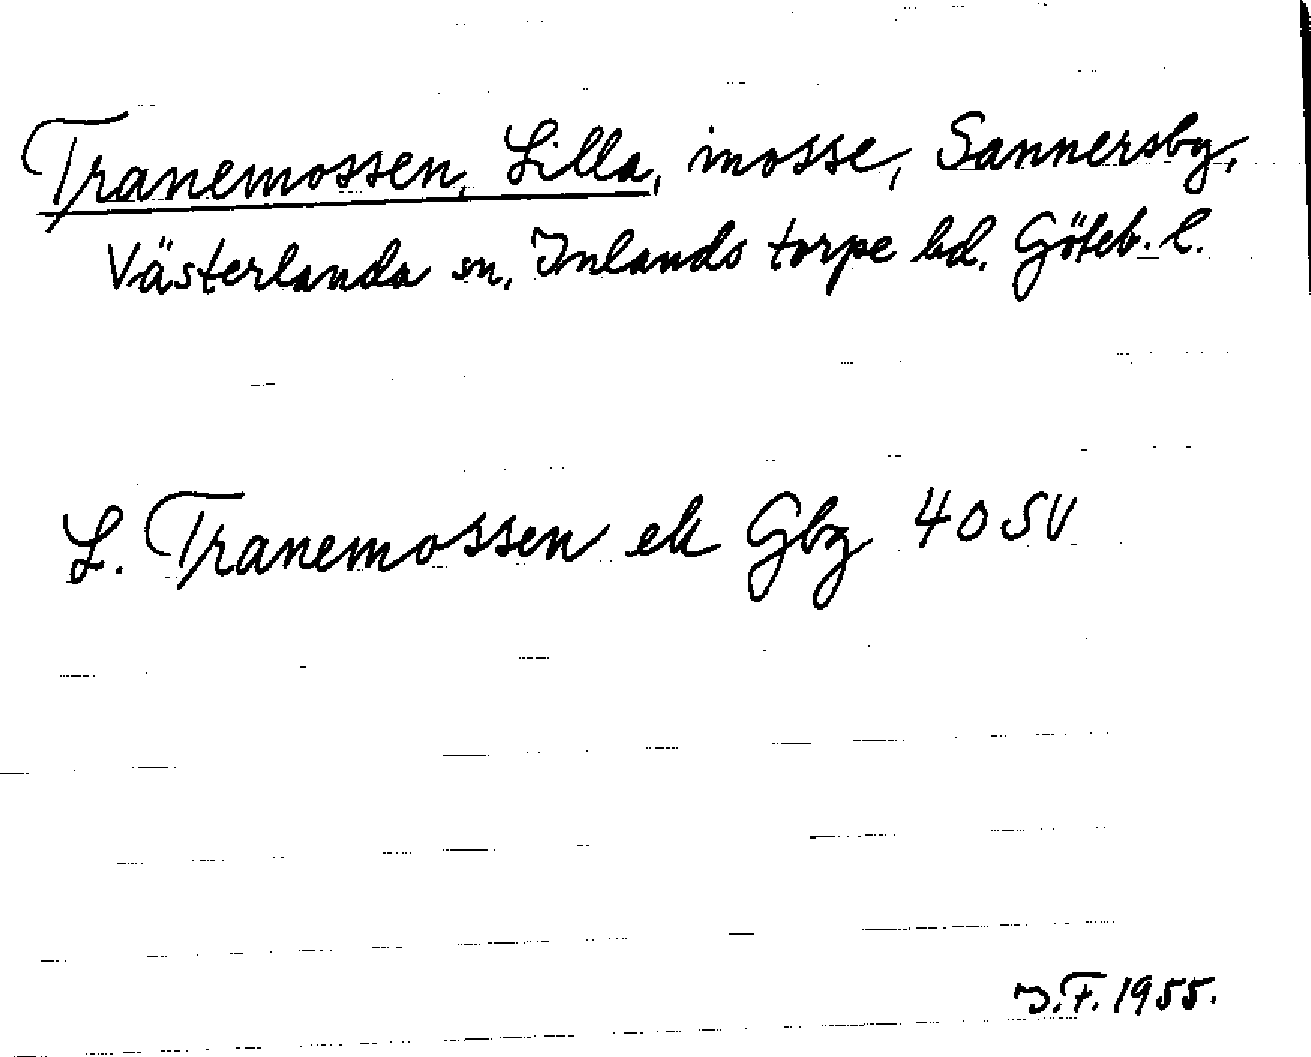 Tranemossen, Lilla, mosse, Sannersby,
Västerlanda sn, Inlands torpe hd. Göteb. l.
L. Tranemossen ek Gbg 40 SV
J.F. 1955.